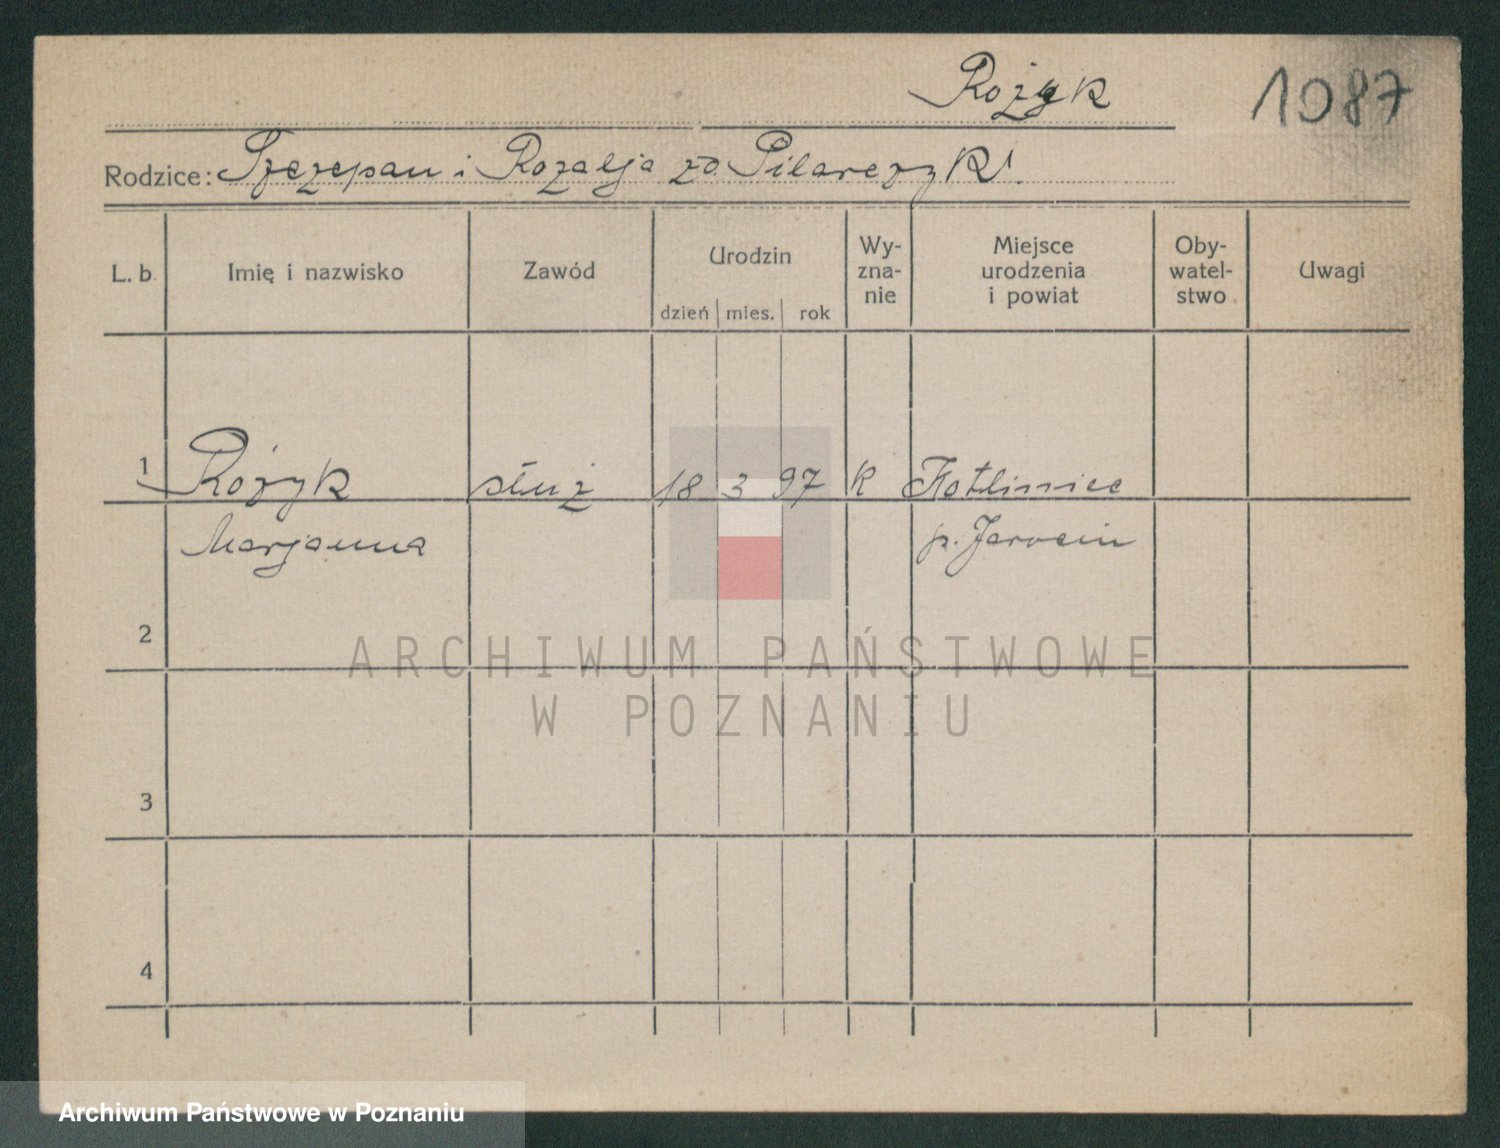 Rożyk 1087
Rodzice: Szczepan i Rozalja zd. Pilarczyk
L. b. Imię i nazwisko Zawód Urodzin dzień mies. rok Wy- zna- nie Miejsce urodzenia i powiat Oby- watel- stwo Uwagi
1 Rożyk służ 18 3 97 K Kotliniec
Marjanna p. Jarocin
2
ARCHIWUM PAŃSTWOWE
W POZNANIU
3
4
Archiwum Państwowe w Poznaniu